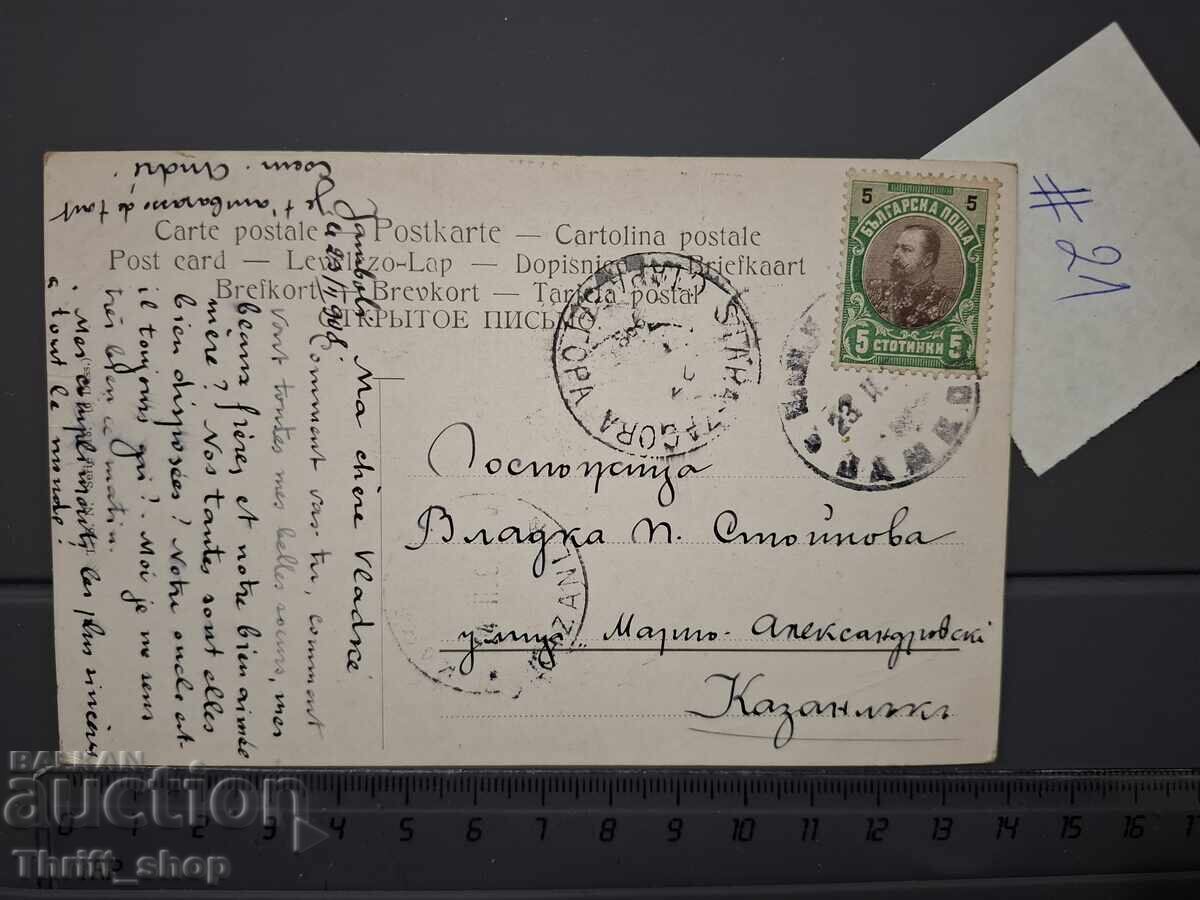 Carte postale — Postkarte — Cartolina postale
Post card — Levelezo-Lap — Dopisnice — Briefkaart
Brefkort — Brevkort — Tarjeta postal
ОТКРЫТОЕ ПИСЬМО
5 5
БЪЛГАРСКА ПОЩА
5 СТОТИНКИ 5
STARA-ZAGORA
23 II
Госпожица
Владка П. Стойнова
улица Марио-Александровски
Казанлъкъ
Jamboli
le 23/II 908
Ma chère Vladka
Comment vas-tu, comment
vont toutes mes belles soeurs, mes
beaux frères et notre bien aimée
mère? Nos tantes sont elles
bien disposées? Notre oncle est-
il toujours gai? Moi je me sens
très bien ce matin.
Mes compliments les plus sincères
à tout le monde!
Je t'embrasse de tout
coeur. André
#21
BALKAN
auction
Thrift_shop
0 1 2 3 4 5 6 7 8 9 10 11 12 13 14 15 16 17